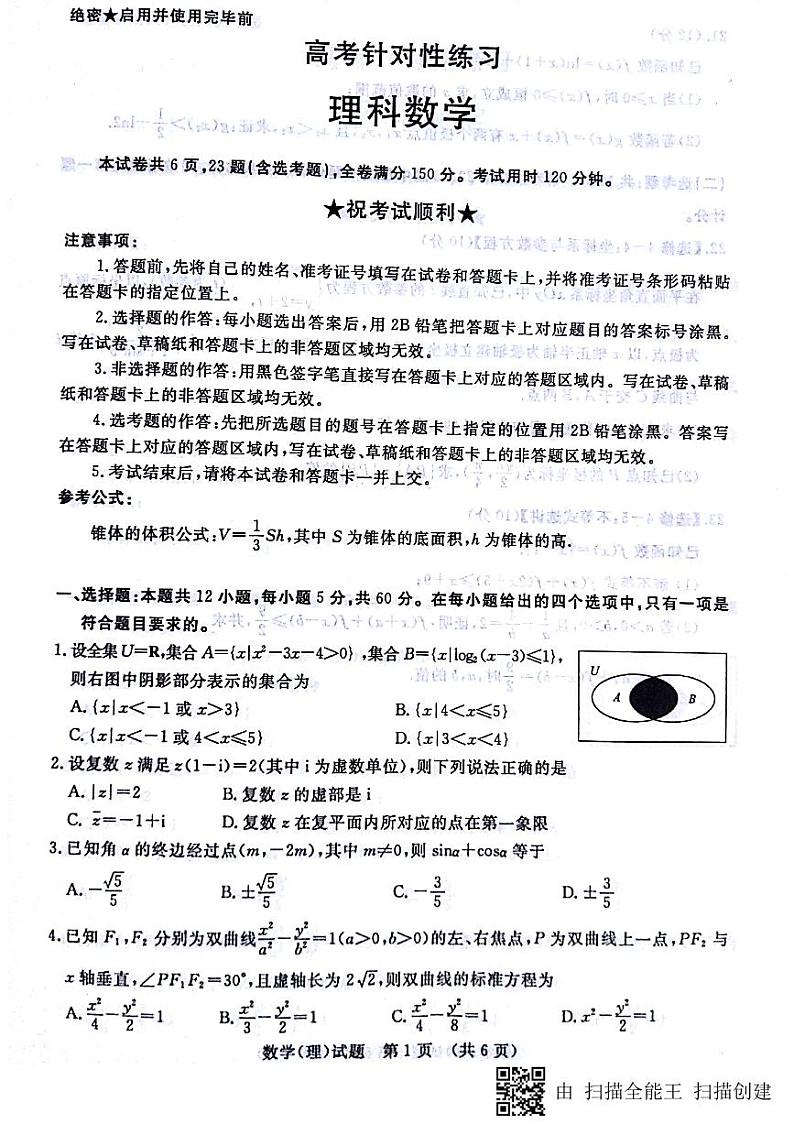 绝密★启用并使用完毕前
高考针对性练习
理科数学
本试卷共6页,23题(含选考题),全卷满分150分。考试用时120分钟。
★祝考试顺利★
注意事项:
1.答题前,先将自己的姓名、准考证号填写在试卷和答题卡上,并将准考证号条形码粘贴
在答题卡的指定位置上。
2.选择题的作答:每小题选出答案后,用2B铅笔把答题卡上对应题目的答案标号涂黑。
写在试卷、草稿纸和答题卡上的非答题区域均无效。
3.非选择题的作答:用黑色签字笔直接写在答题卡上对应的答题区域内。写在试卷、草稿
纸和答题卡上的非答题区域均无效。
4.选考题的作答:先把所选题目的题号在答题卡上指定的位置用2B铅笔涂黑。答案写
在答题卡上对应的答题区域内,写在试卷、草稿纸和答题卡上的非答题区域均无效。
5.考试结束后,请将本试卷和答题卡一并上交。
参考公式:
锥体的体积公式:V=1/3Sh,其中S为锥体的底面积,h为锥体的高.
一、选择题:本题共12小题,每小题5分,共60分。在每小题给出的四个选项中,只有一项是
符合题目要求的。
1.设全集U=R,集合A={x|x²-3x-4>0},集合B={x|log₂(x-3)≤1},
则右图中阴影部分表示的集合为
U
A
B
A.{x|x<-1或x>3} B.{x|4<x≤5}
C.{x|x<-1或4<x≤5} D.{x|3<x<4}
2.设复数z满足z(1-i)=2(其中i为虚数单位),则下列说法正确的是
A.|z|=2 B.复数z的虚部是i
C.z̅=-1+i D.复数z在复平面内所对应的点在第一象限
3.已知角α的终边经过点(m,-2m),其中m≠0,则sinα+cosα等于
A.-√5/5 B.±√5/5 C.-3/5 D.±3/5
4.已知F₁,F₂分别为双曲线x²/a²-y²/b²=1(a>0,b>0)的左、右焦点,P为双曲线上一点,PF₂与
x轴垂直,∠PF₁F₂=30°,且虚轴长为2√2,则双曲线的标准方程为
A.x²/4-y²/2=1 B.x²/3-y²/2=1 C.x²/4-y²/8=1 D.x²-y²/2=1
数学(理)试题 第1页 (共6页)
由 扫描全能王 扫描创建